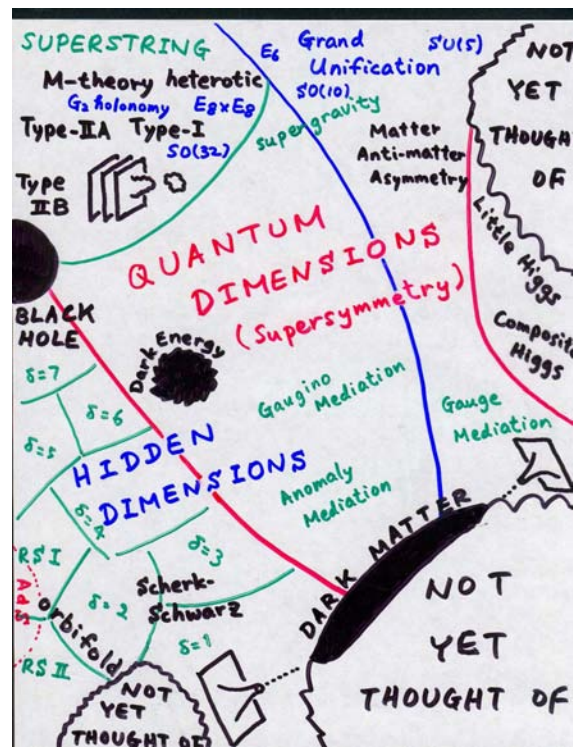 SUPERSTRING
M-theory heterotic
G₂ holonomy E8×E8
Type-IIA Type-I
SO(32)
Type
IIB
E6 Grand SU(5)
Unification
SO(10)
supergravity
Matter
Anti-matter
Asymmetry
NOT
YET
THOUGHT
OF
Little Higgs
Composite
Higgs
QUANTUM
DIMENSIONS
(Supersymmetry)
BLACK
HOLE
Dark Energy
Gaugino
Mediation
Gauge
Mediation
Anomaly
Mediation
δ=7
δ=6
δ=5
HIDDEN
DIMENSIONS
δ=4
δ=3
RS I
AdS
orbifold
δ=2
Scherk-
Schwarz
δ=1
RS II
DARK MATTER
NOT
YET
THOUGHT OF
NOT
YET
THOUGHT OF